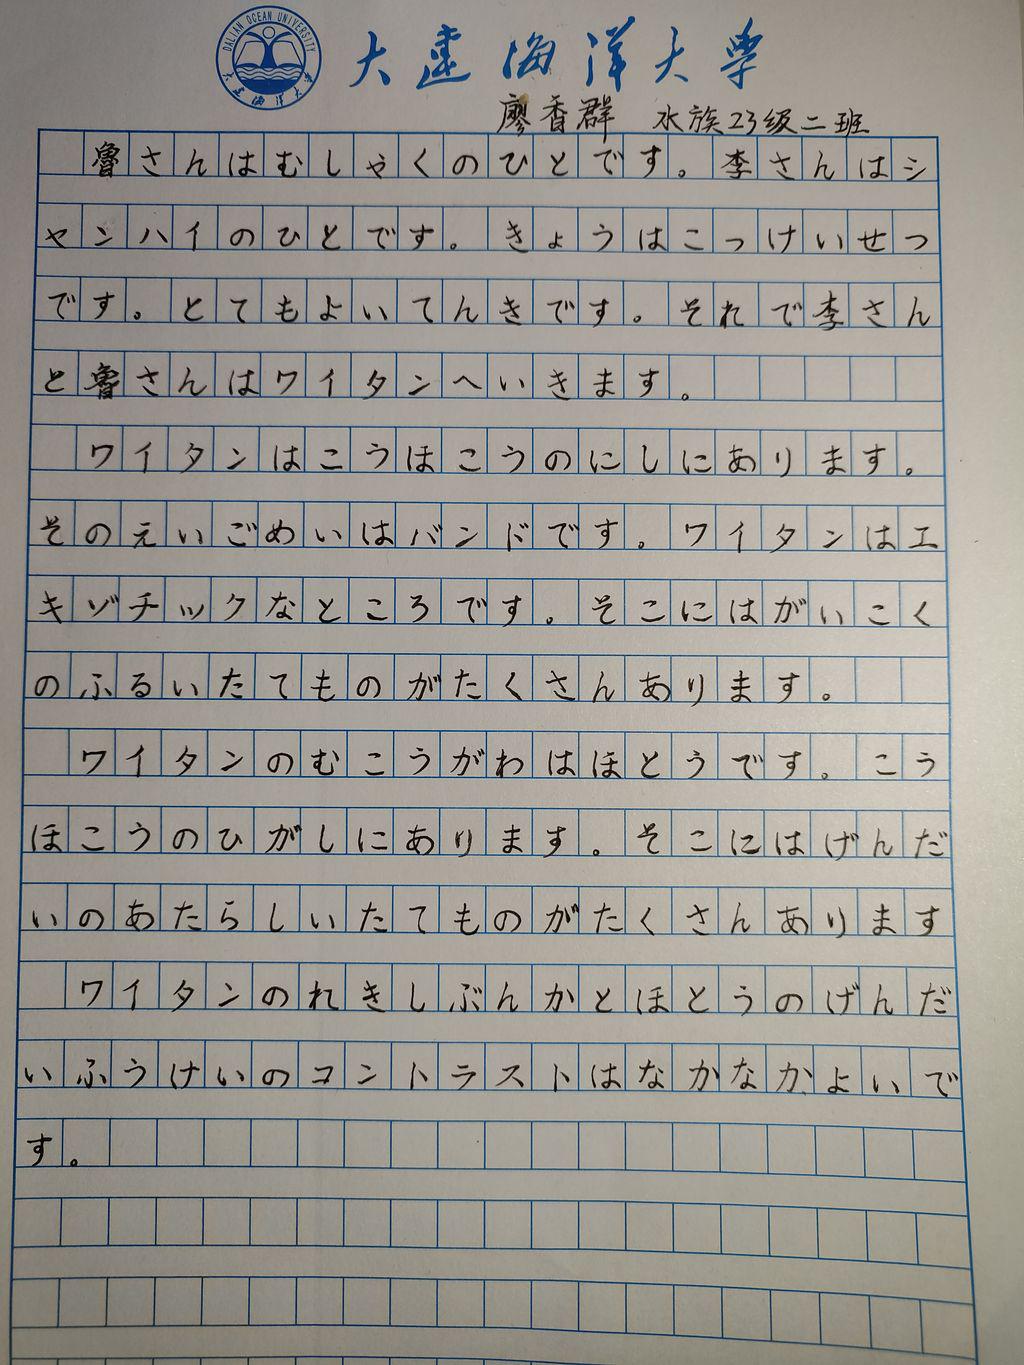 DALIAN OCEAN UNIVERSITY
大连海洋大学
大连海洋大学
廖香群 水族23级二班
魯さんはむしゃくのひとです。李さんはシ
ャンハイのひとです。きょうはこっけいせつ
です。とてもよいてんきです。それで李さん
と魯さんはワイタンへいきます。
ワイタンはこうほこうのにしにあります。
そのえいごめいはバンドです。ワイタンはエ
キゾチックなところです。そこにはがいこく
のふるいたてものがたくさんあります。
ワイタンのむこうがわはほとうです。こう
ほこうのひがしにあります。そこにはげんだ
いのあたらしいたてものがたくさんあります
ワイタンのれきしぶんかとほとうのげんだ
いふうけいのコントラストはなかなかよいで
す。